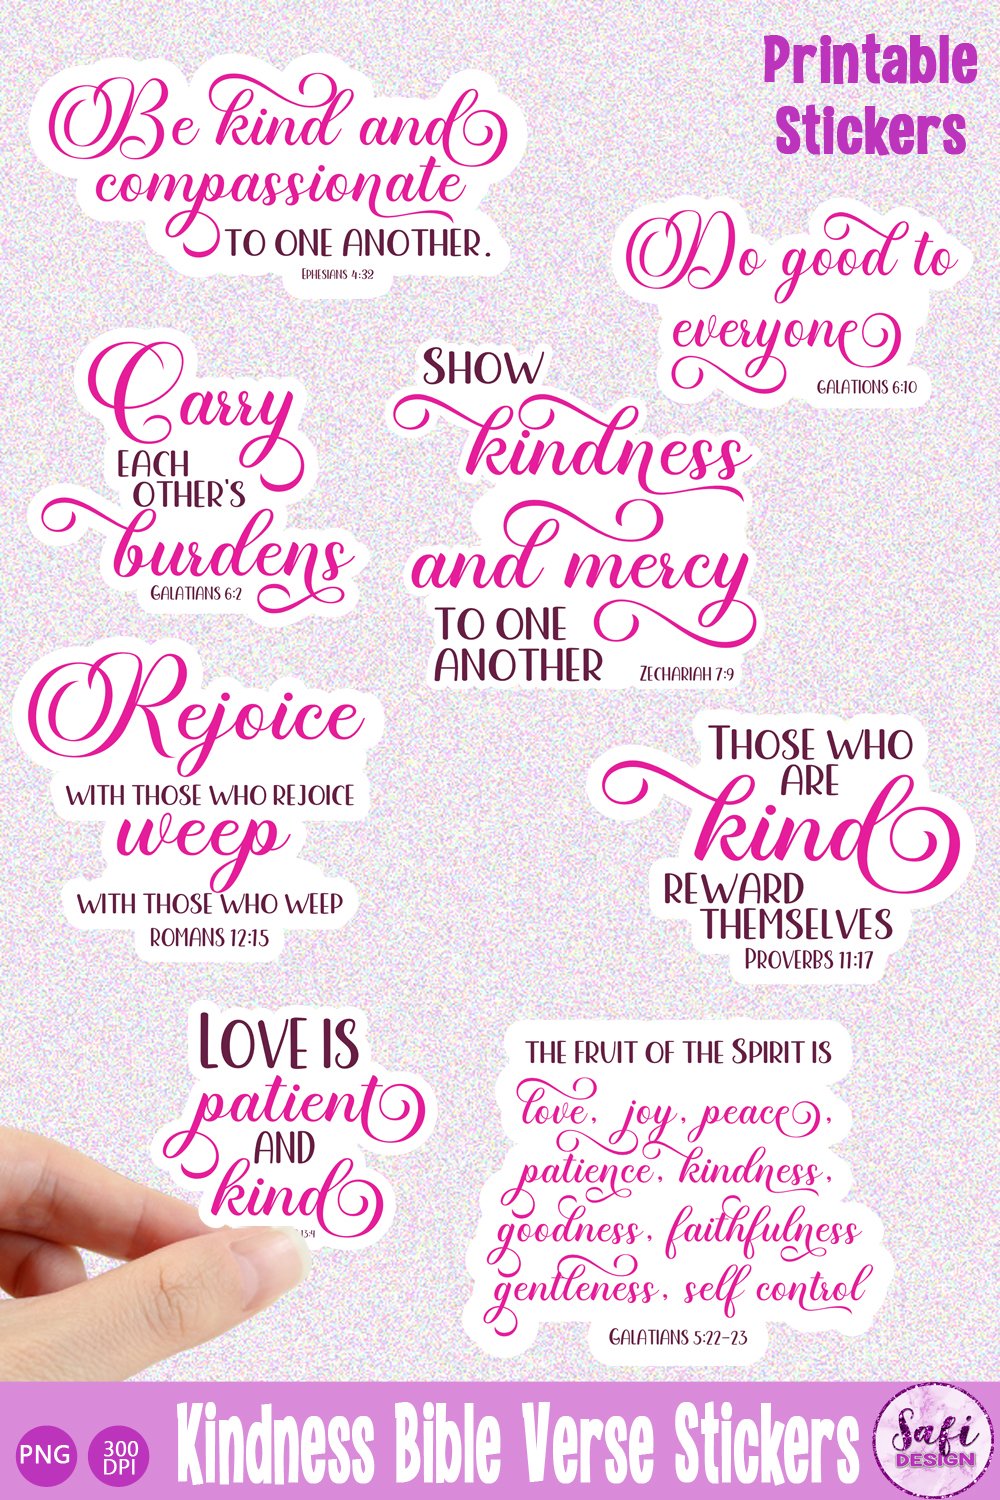 Printable
Stickers
Be kind and
compassionate
TO ONE ANOTHER.
EPHESIANS 4:32
Do good to
everyone
GALATIONS 6:10
Carry
EACH
OTHER'S
burdens
GALATIANS 6:2
SHOW
kindness
and mercy
TO ONE
ANOTHER
ZECHARIAH 7:9
Rejoice
WITH THOSE WHO REJOICE
weep
WITH THOSE WHO WEEP
ROMANS 12:15
THOSE WHO
ARE
kind
REWARD
THEMSELVES
PROVERBS 11:17
LOVE IS
patient
AND
kind
13:4
THE FRUIT OF THE SPIRIT IS
love, joy, peace,
patience, kindness,
goodness, faithfulness
gentleness, self control
GALATIANS 5:22-23
PNG
300
DPI
Kindness Bible Verse Stickers
Safi
DESIGN